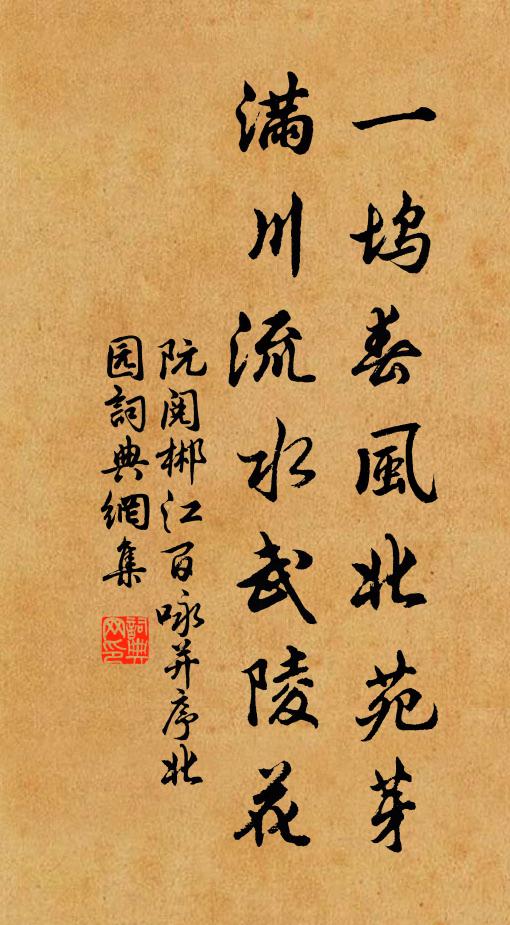 一塢春風北苑芽
滿川流水武陵花
阮閱郴江百咏并序北
园詞典網集
詞典網印